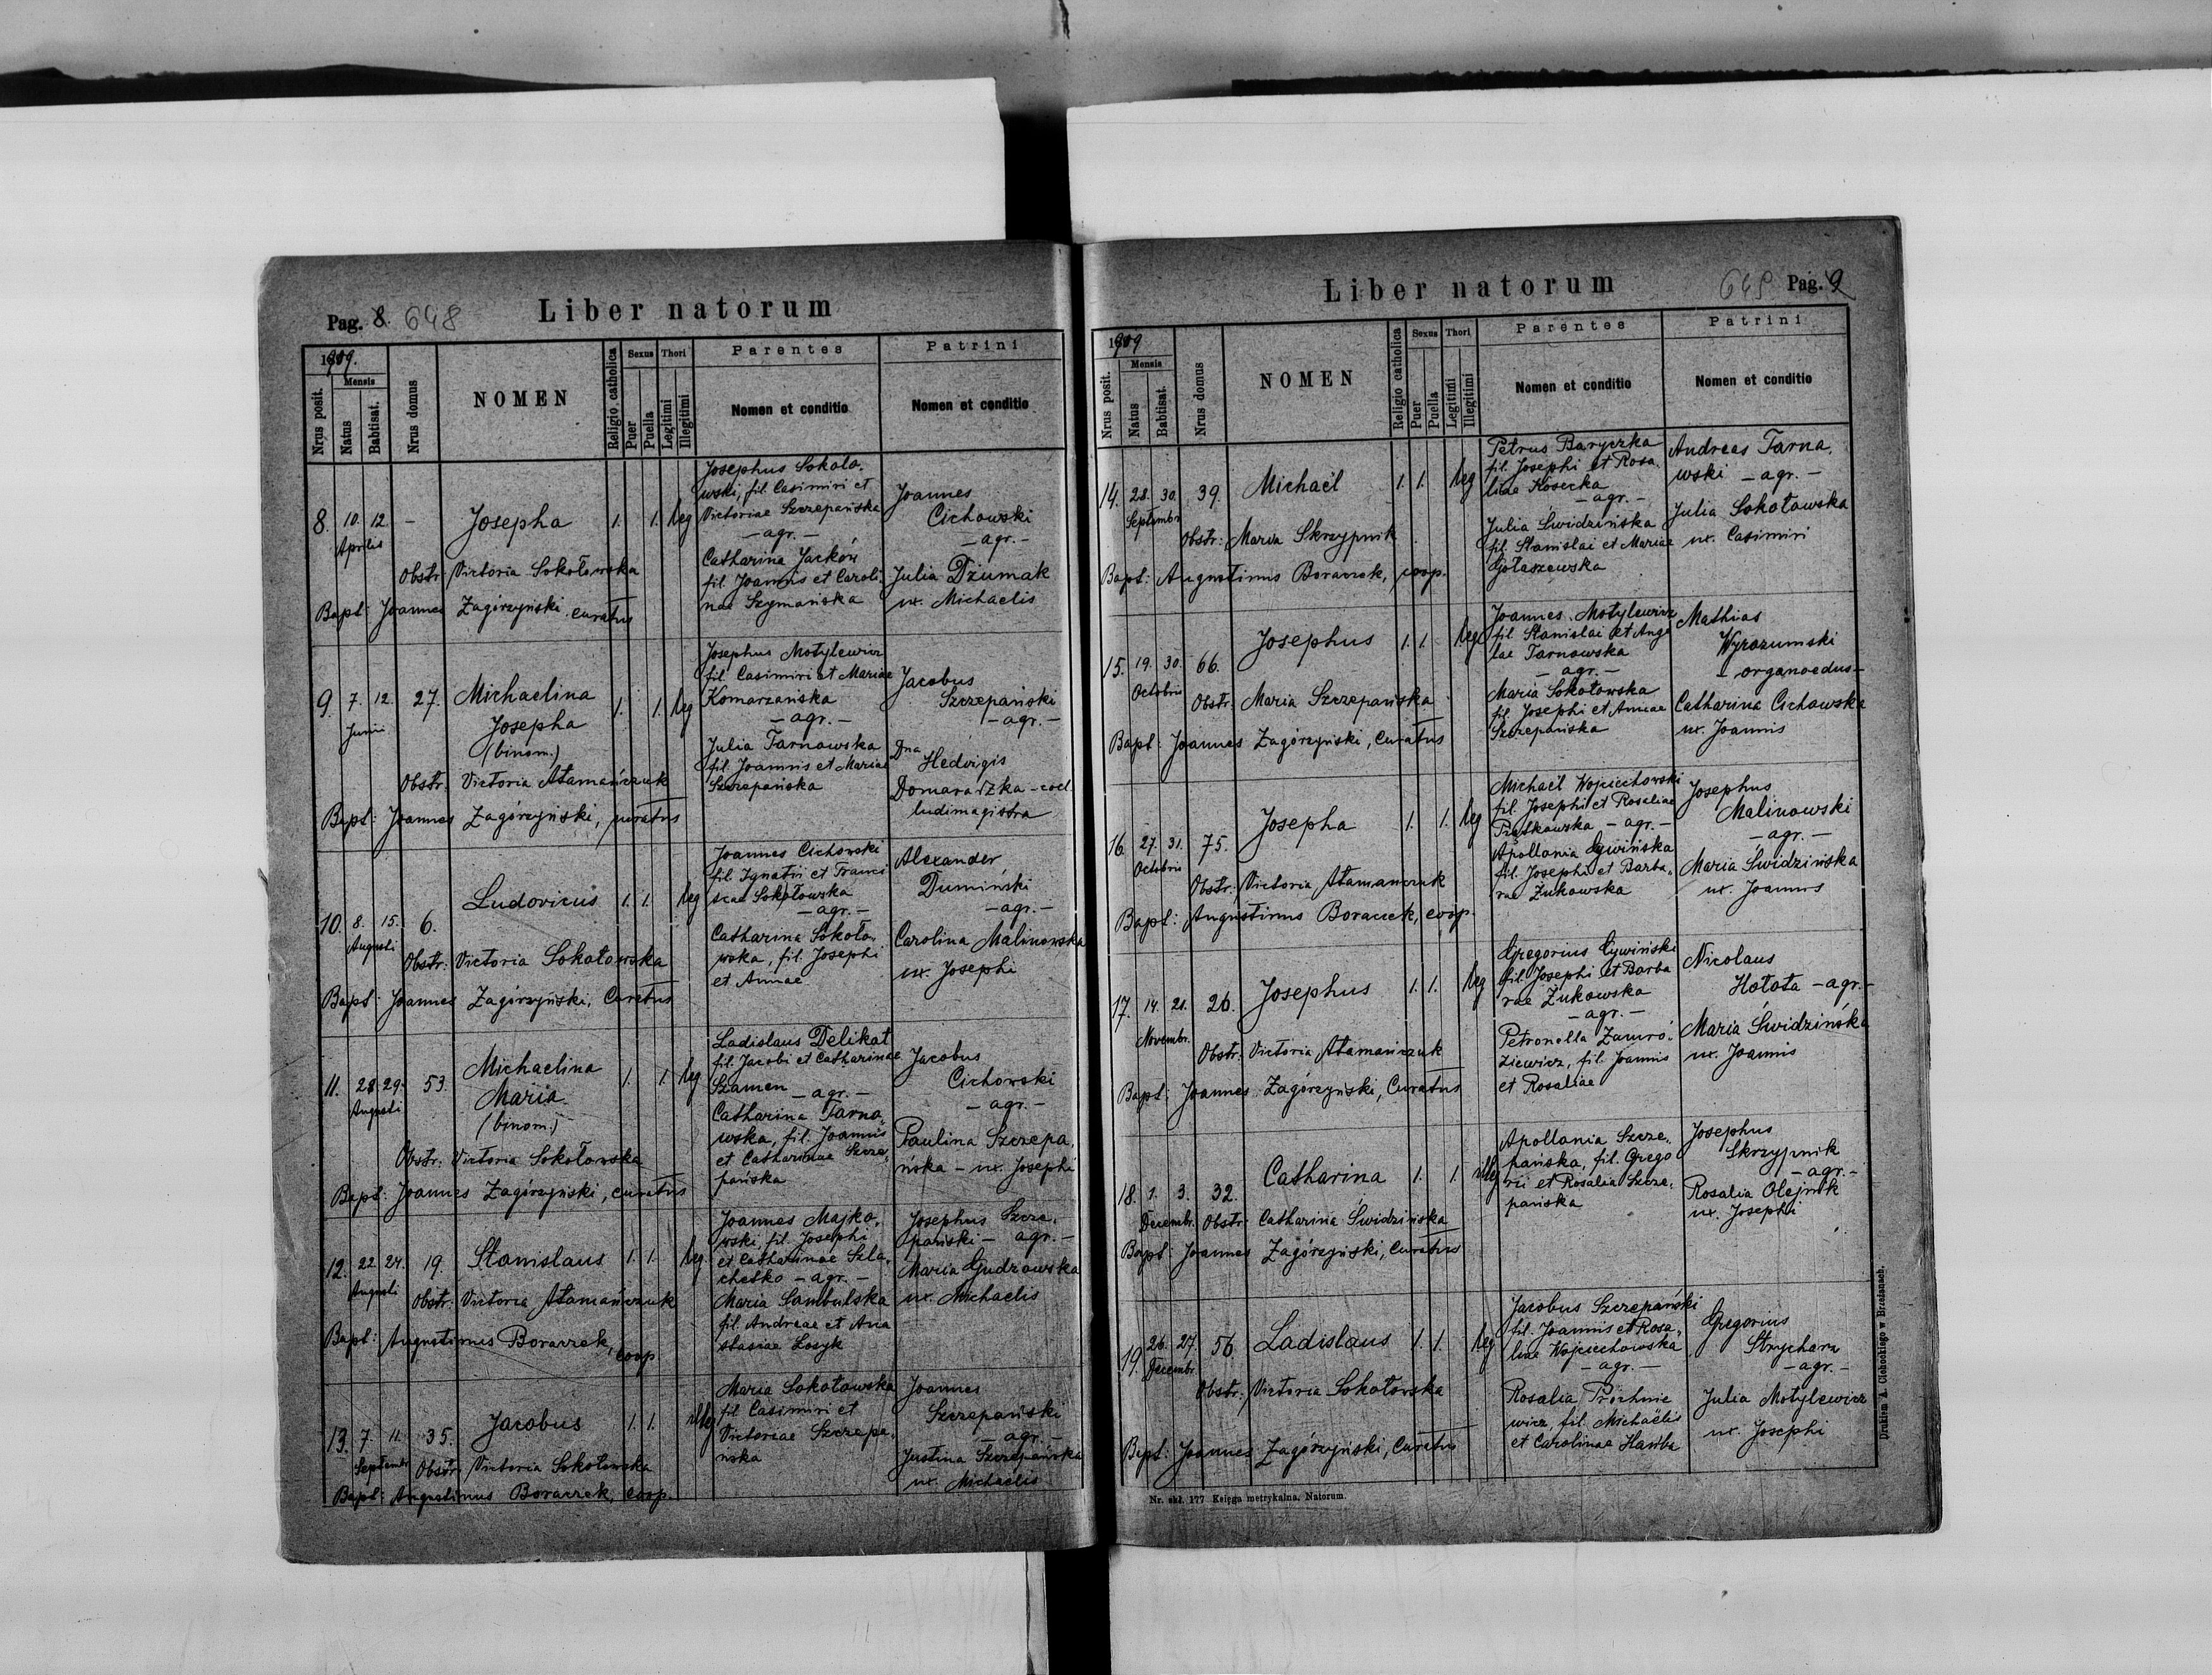 Pag. 8. 648
Liber natorum
1909.
Nrus posit.
Mensis
Natus
Babtisat.
Nrus domus
NOMEN
Religio catholica
Sexus
Puer
Puella
Thori
Legitimi
Illegitimi
Parentes
Nomen et conditio
Patrini
Nomen et conditio
8. 10. 12. - Josepha 1. 1. leg
Aprilis
Obstr: Victoria Sokołowska
Bapt: Joannes Zagórzyński, curatus
Josephus Sokoło-
wski, fil. Casimiri et
Victoriae Szczepańska
- agr. -
Catharina Jacków
fil. Joannis et Caroli-
nae Szymańska
Joannes
Cichowski
- agr. -
Julia Dziumak
ux. Michaelis
9. 7. 12. 27. Michaelina 1. 1. leg
Junii
Josepha
(binom.)
Obstr. Victoria Atamańczuk
Bapt: Joannes Zagórzyński, curatus
Josephus Motylewicz
fil. Casimiri et Mariae
Komarzańska
- agr. -
Julia Tarnawska
fil. Joannis et Mariae
Szczepańska
Jacobus
Szczepański
- agr. -
Dna
Hedvigis
Domaradzka - coel
ludimagistra
10. 8. 15. 6. Ludovicus 1. 1. leg
Augusti
Obstr: Victoria Sokołowska
Bapt: Joannes Zagórzyński, Curatus
Joannes Cichowski
fil. Ignatii et Franci
scae Sokołowska
- agr. -
Catharina Sokoło-
wska, fil. Josephi
et Annae
Alexander
Dumiński
- agr. -
Carolina Malinowska
ux. Josephi
11. 28. 29. 53. Michaelina 1. 1. leg
Augusti
Maria
(binom.)
Obstr: Victoria Sokołowska
Bapt: Joannes Zagórzyński, curatus
Ladislaus Delikat
fil. Jacobi et Catharinae
Szamen - agr. -
Catharina Tarna-
wska, fil. Joannis
et Catharinae Szcze-
pańska
Jacobus
Cichowski
- agr. -
Paulina Szczepa-
ńska - ux. Josephi
12. 22. 24. 19. Stanislaus 1. 1. leg.
Augusti
Obstr: Victoria Atamańczuk
Bapt: Augustinus Boraczek, coop.
Joannes Majko-
wski, fil. Josephi
et Catharinae Szla-
chetko - agr. -
Maria Sambulska
fil. Andreae et Ana
stasiae Łosyk
Josephus Szcze-
pański - agr. -
Maria Gudzowska
ux. Michaelis
13. 7. 11. 35. Jacobus 1. 1. illeg
Septembr.
Obstr. Victoria Sokołowska
Bapt: Augustinus Boraczek, coop.
Maria Sokołowska
fil Casimiri et
Victoriae Szczepa-
ńska
Joannes
Szczepański
- agr. -
Justina Szczepańska
ux. Michaelis
Liber natorum
649 Pag. 9
1909
Nrus posit.
Mensis
Natus
Babtisat.
Nrus domus
NOMEN
Religio catholica
Sexus
Puer
Puella
Thori
Legitimi
Illegitimi
Parentes
Nomen et conditio
Patrini
Nomen et conditio
14. 28. 30. 39. Michaël 1. 1. leg
Septembr.
Obstr: Maria Skrzypnik
Bapt: Augustinus Boraczek, coop.
Petrus Baryczka
fil. Josephi et Rosa-
liae Kosecka
- agr. -
Julia Świdzińska
fil. Stanislai et Mariae
Gołaszewska
Andreas Tarna-
wski - agr. -
Julia Sokołowska
ux. Casimiri
15. 19. 30. 66. Josephus 1. 1. leg
Octobris
Obstr. Maria Szczepańska
Bapt: Joannes Zagórzyński, Curatus
Joannes Motylewicz
fil Stanislai et Ange
lae Tarnowska
- agr. -
Maria Sokołowska
fil. Josephi et Annae
Szczepańska
Mathias
Wyrozumski
- organoedus -
Catharina Cichowska
ux. Joannis
16. 27. 31. 75. Josepha 1. 1. leg
Octobris
Obstr: Victoria Atamańczuk
Bapt: Augustinus Boraczek, coop.
Michaël Wojciechowski
fil. Josephi et Rosaliae
Piątkowska - agr. -
Apollonia Cywińska
fil. Josephi et Barba-
rae Żukowska
Josephus
Malinowski
- agr. -
Maria Świdzińska
ux. Joannis
17. 14. 21. 26. Josephus 1. 1. leg
Novembr.
Obstr: Victoria Atamańczuk
Bapt: Joannes Zagórzyński, Curatus
Gregorius Cywiński
fil. Josephi et Barba
rae Żukowska
- agr. -
Petronella Zawró-
ziewicz, fil. Joannis
et Rosaliae
Nicolaus
Hołota - agr. -
Maria Świdzińska
ux. Joannis
18. 1. 3. 32. Catharina 1. 1. illeg
Decembr.
Obstr: Catharina Świdzińska
Bapt: Joannes Zagórzyński, Curatus
Apollonia Szcze-
pańska, fil. Grego
rii et Rosalia Szcze-
pańska
Josephus
Skrzypnik
- agr. -
Rosalia Olejnik
ux. Josephi
19. 26. 27. 56. Ladislaus 1. 1. leg
Decembr.
Obstr: Victoria Sokołowska
Bapt: Joannes Zagórzyński, Curatus
Jacobus Szczepański
fil. Joannis et Rosa-
liae Wojciechowska
- agr. -
Rosalia Próchnie
wicz, fil. Michaëlis
et Carolinae Hańba
Gregorius
Strycharz
- agr. -
Julia Motylewicz
ux. Josephi
Nr. skł. 177 Księga metrykalna. Natorum.
Drukiem A. Ciechockiego w Brzeżanach.